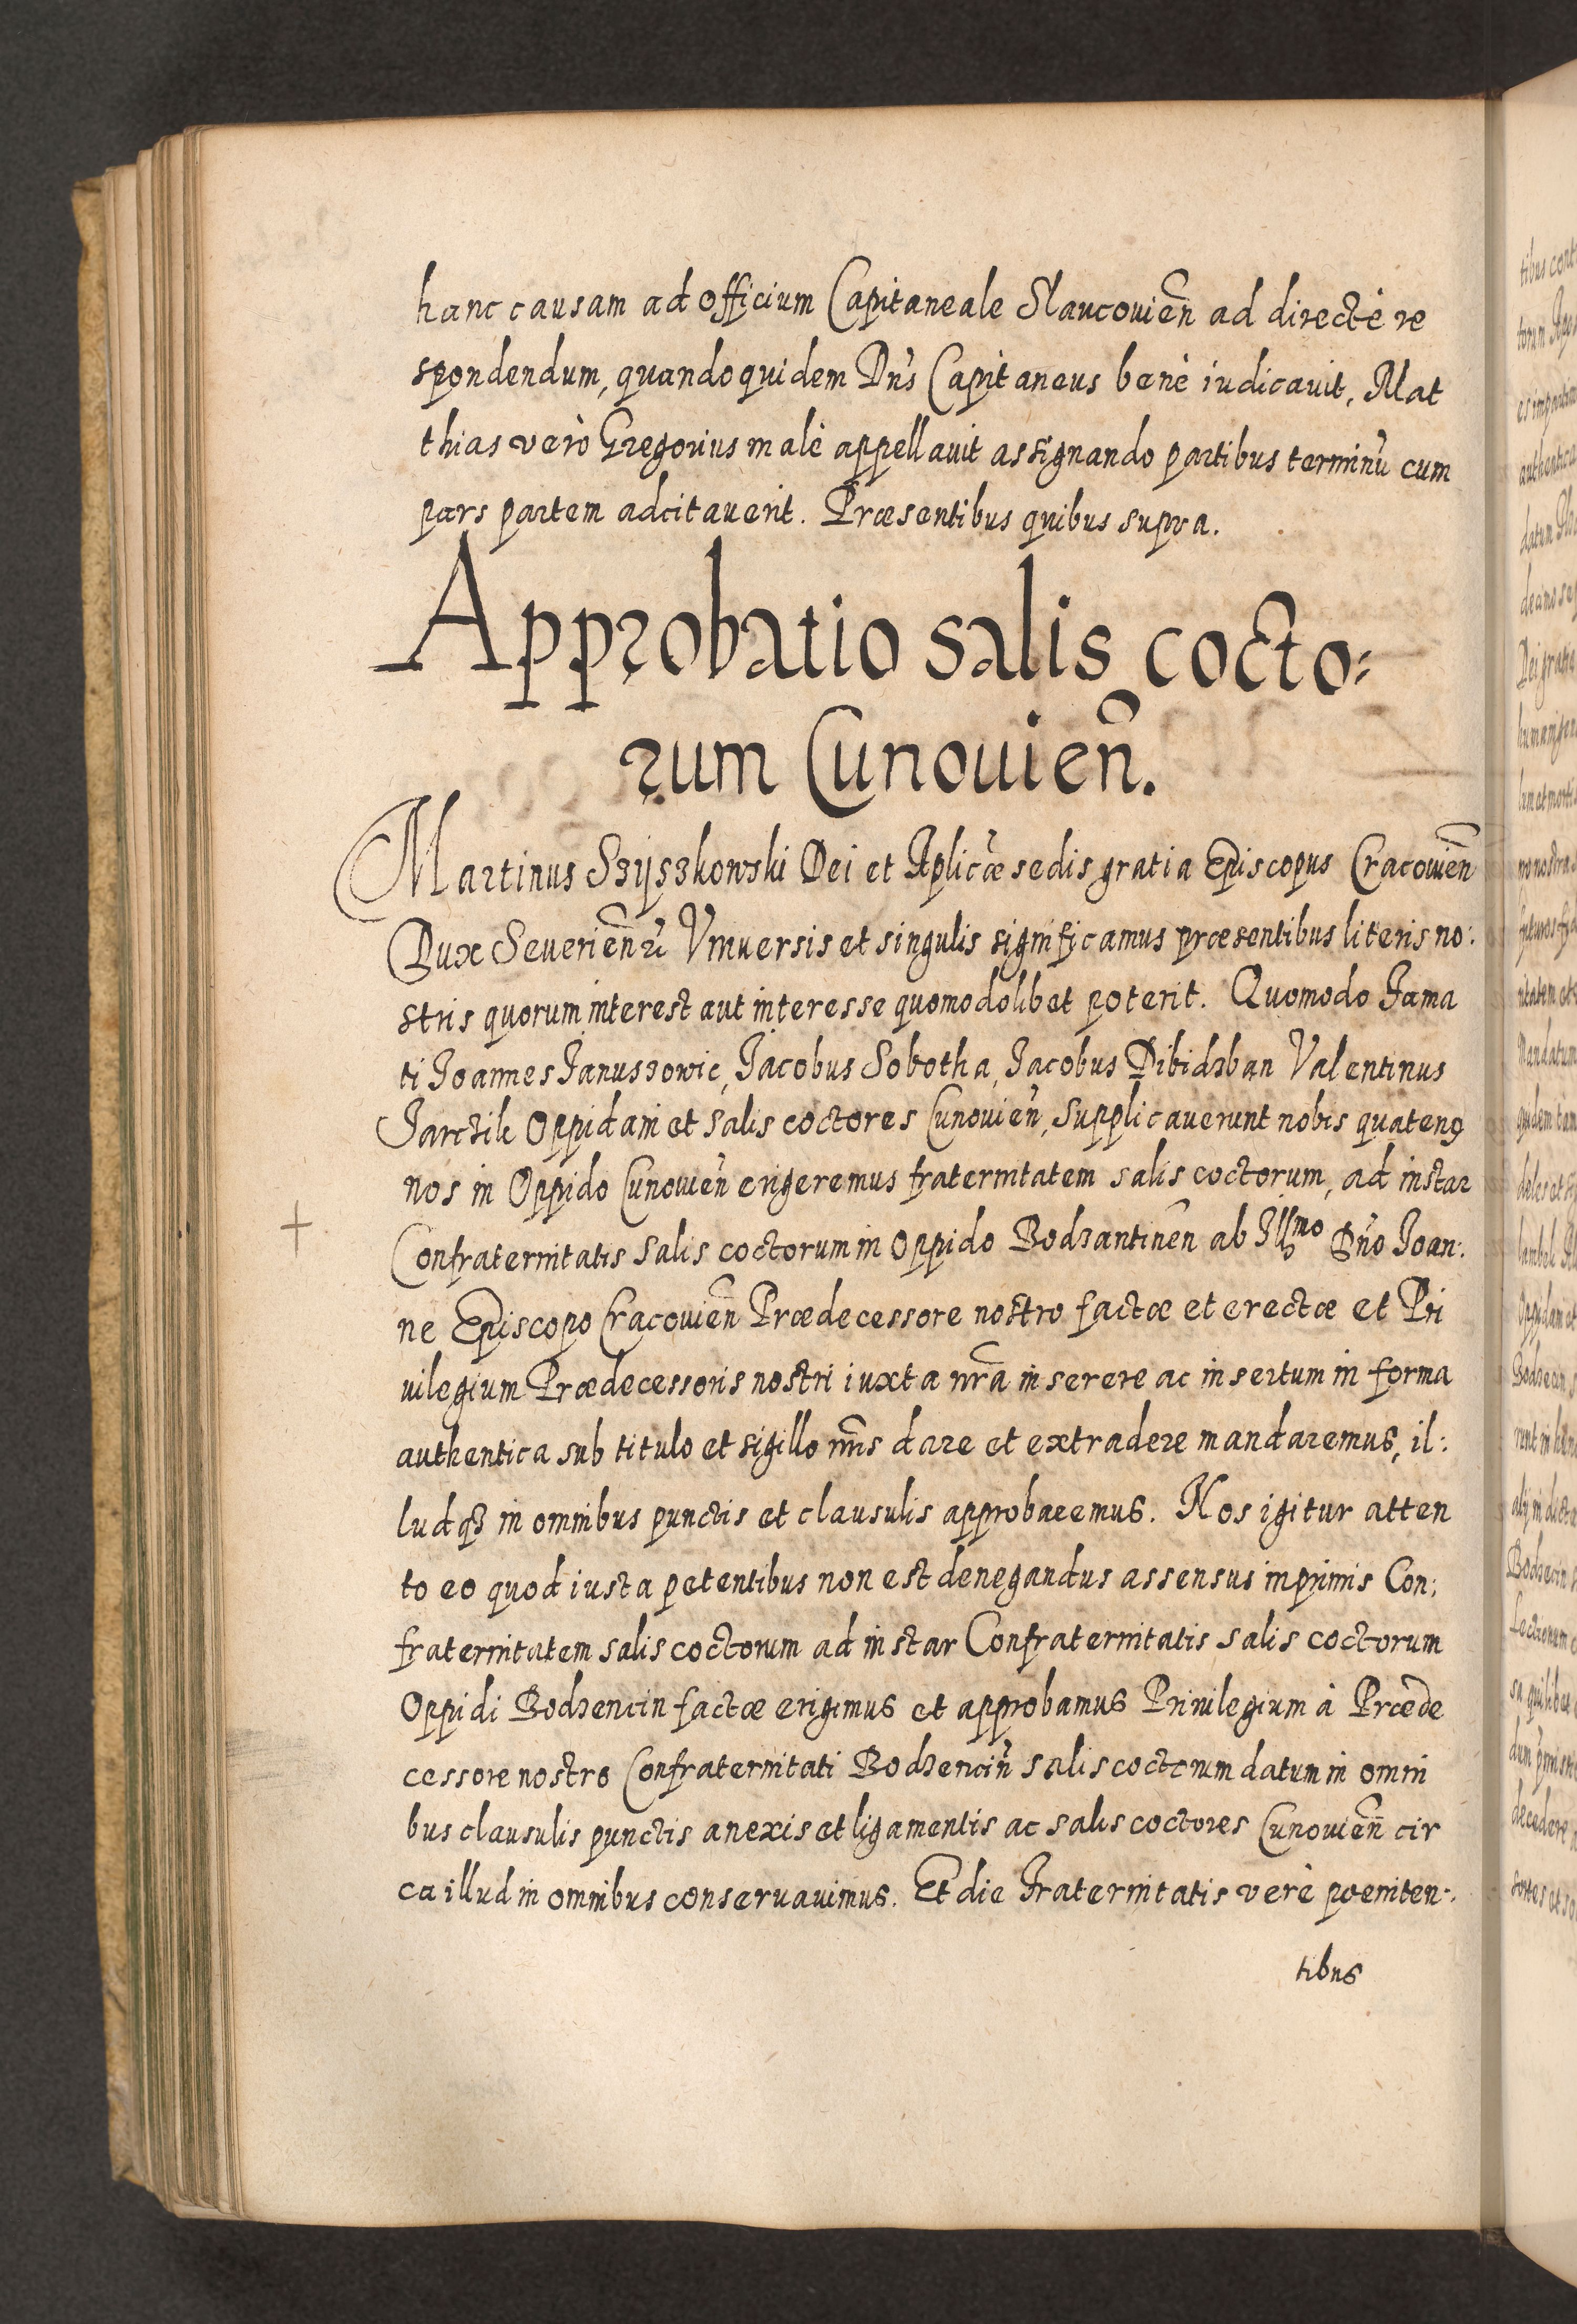 hanc causam ad officium Capitaneale Slaucouien̄ ad directè re
spondendum, quandoquidem Dn̄s Capitaneus benè iudicauit, Mat
thias verò Gregorius malè appellauit assignando partibus terminū cum
pars partem adcitauerit. Præsentibus quibus supra.
Approbatio salis cocto=
rum Cunouien̄.
Martinus Szyszkowski Dei et Aplicæ sedis gratia Episcopus Cracouien̄
Dux Seuerien̄ Vniuersis et singulis significamus præsentibus literis no:
stris quorum interest aut interesse quomodolibet poterit. Quomodo Fama
ti Joannes Januszowic, Jacobus Sobotha, Jacobus Dibidzban Valentinus
Jarczik Oppidani et salis coctores Cunouien̄, supplicauerunt nobis quatenꝰ
nos in Oppido Cunouien̄ erigeremus fraternitatem salis coctorum, ad instar
Confraternitatis salis coctorum in Oppido Bodzantinen̄ ab Illmo Dn̄o Joan:
ne Episcopo Cracouien̄ Prædecessore nostro factæ et erectæ et Pri
uilegium Prædecessoris nostri iuxta nr̄a inserere ac insertum in forma
authentica sub titulo et sigillo nr̄is dare et extradere mandaremus, il:
ludqȝ in omnibus punctis et clausulis approbaremus. Nos igitur atten
to eo quod iusta petentibus non est denegandus assensus inprimis Con:
fraternitatem salis coctorum ad instar Confraternitatis salis coctorum
Oppidi Bodzencin factæ erigimus et approbamus Priuilegium à Præde
cessore nostro Confraternitati Bodzencin̄ salis coctorum datum in omni
bus clausulis punctis anexis et ligamentis ac salis coctores Cunouien̄ cir
ca illud in omnibus conseruauimus. Et die Fraternitatis verè pœniten:
tibus